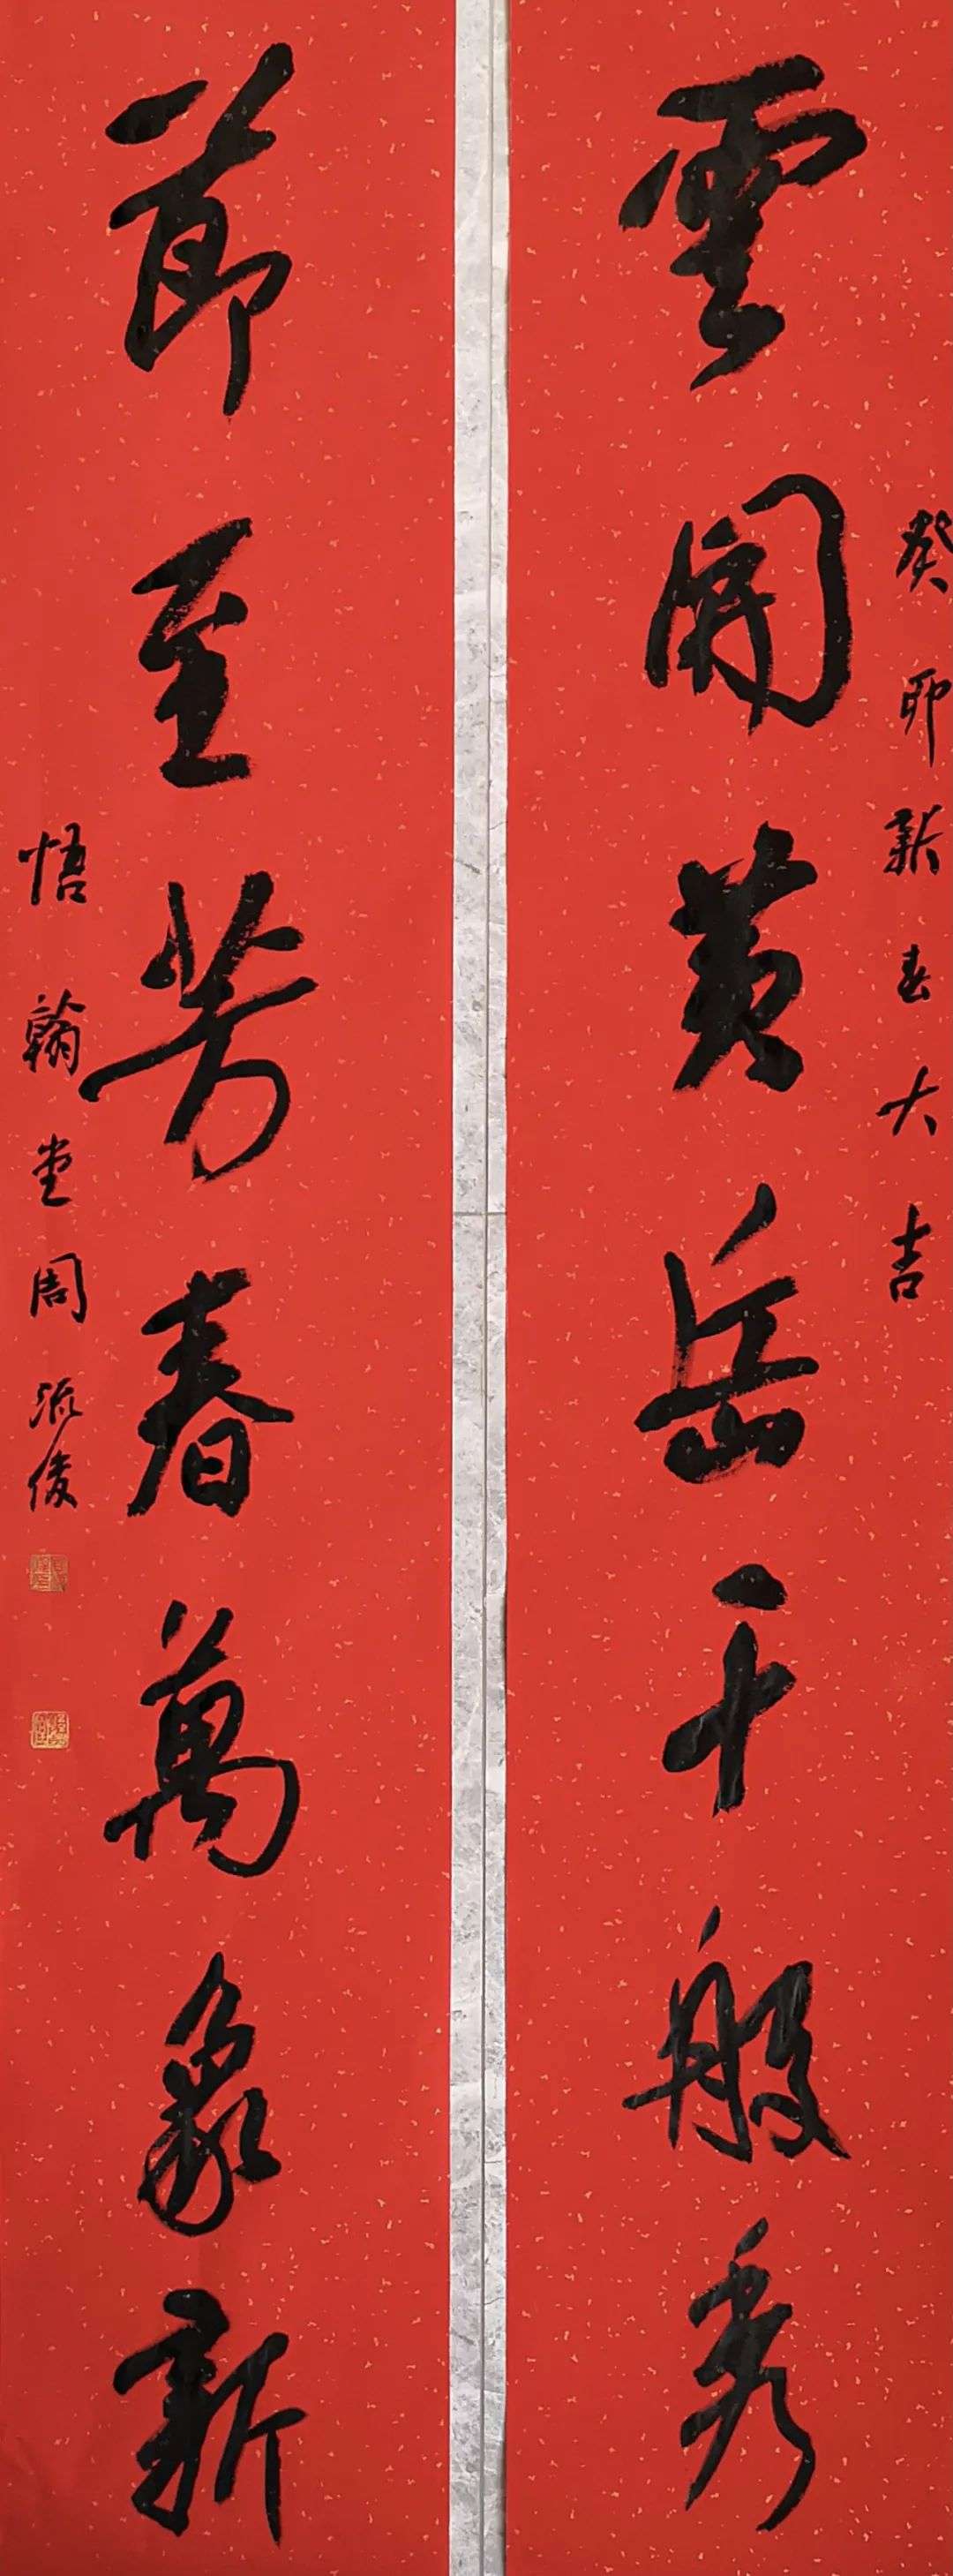 癸卯新春大吉
雲開黃岳千般秀
節至芳春萬象新
悟翰堂周流俊